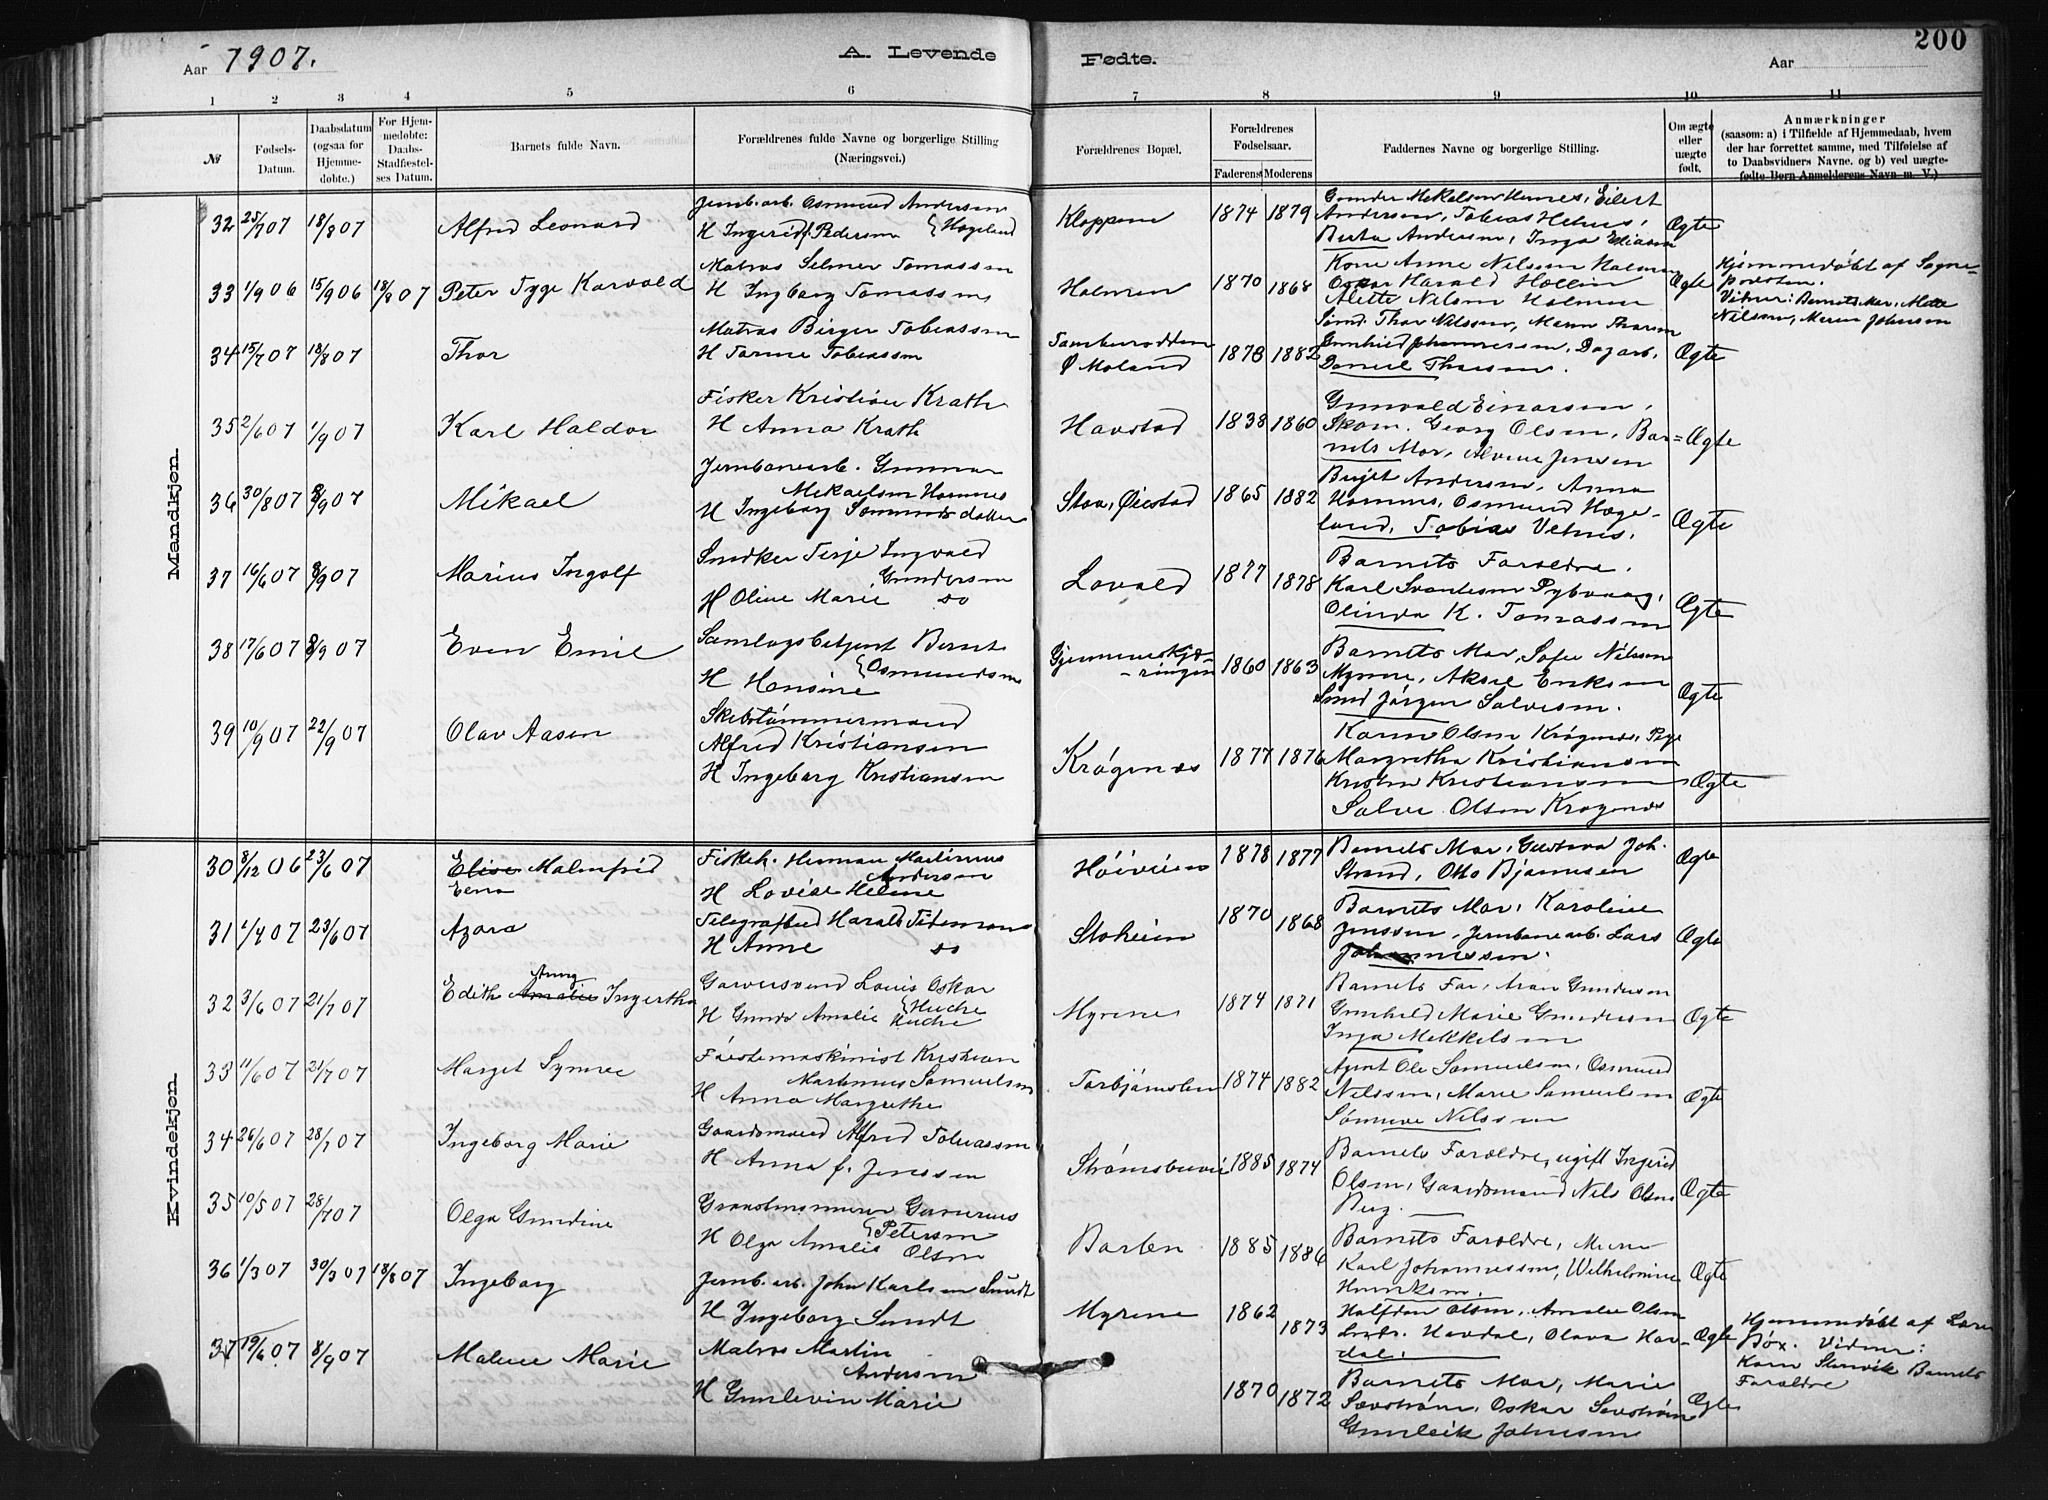 Aar 1907.
A. Levende Fødte.
Aar
200
1 2 3 4 5 6 7 8 9 10 11
№
Fødsels-Datum.
Daabsdatum (ogsaa for Hjemmedøbte.)
For Hjemmedøbte: Daabs-Stadfæstelses Datum.
Barnets fulde Navn.
Forældrenes fulde Navne og borgerlige Stilling (Næringsvei.)
Forældrenes Bopæl.
Forældrenes Fødselsaar.
Faderens Moderens
Faddernes Navne og borgerlige Stilling.
Om ægte eller uægte født.
Anmærkninger (saasom: a) i Tilfælde af Hjemmedaab, hvem der har forrettet samme, med Tilføielse af to Daabsvidners Navne. og b) ved uægtefødte Børn Anmelderens Navn m. V.)
Mandkjøn.
32 25/7 07 18/8 07 Alfred Leonard
Jernb.arb. Osmund Andersen Hægeland
H Ingerid f. Pedersen
Kloppene 1874 1879
Gunder Mikkelsen Homes, Eilert
Andersen, Tobias Helnes,
Berta Andersen, Inga Eliasen
Ægte
33 1/9 06 15/9 06 18/8 07 Peter Tyge Karvald
Matros Selmer Tomassen
H Ingborg Tomassen
Holmen 1870 1868
Kone Anne Nilssen Holmen
Oskar Harald Hollin
Alette Nilsen Holmen
Ægte
Hjemmedøbt af Sogne-
presten.
Vitner: Barnets Mor, Mette
Nilssen, Maren Johnsen
34 15/7 07 18/8 07 Thor
Matros Birger Tobiassen
H Tomine Tobiassen
Ø Moland 1878 1882
Smed Thor Nilssen, Maren Thorsen
Gunhild Johannessen, Dagarb.
Daniel Thorsen.
Ægte
35 2/6 07 1/9 07 Karl Haldor
Fisker Kristian Krath
H Anna Krath
Havstad 1838 1860
Gunvald Einarsen,
Skom. Georg Olsen, Bar-
nets Mor, Alvine Jensen
Ægte
36 30/8 07 8/9 07 Mikael
Jernbanearb. Gunnar
Mikaelsen Homnes
H Ingeborg Somundsdatter
Stoa, Øiestad 1865 1882
Birgit Andersen, Anna
Homnes, Osmund Hæge-
land, Tobias Velnes.
Ægte
37 16/6 07 8/9 07 Marius Ingolf
Snedker Terje Ingvald
Gundersen
H Oline Marie do
Lovold 1877 1878
Barnets Forældre,
Karl Svantesen Pybvaag,
Olinda K. Tomassen
Ægte
38 17/6 07 8/9 07 Even Emil
Samlagsbetjent Bernt
Osmundsen
H Hansine
Gjennemskjæ-
ringen 1860 1863
Barnets Mor, Sofie Nilssen
Myrene, Aksel Eriksen
Smed Jørgen Salvesen.
Ægte
39 10/9 07 22/9 07 Olav Aasen
Skibstømmermand
Alfred Kristiansen
H Ingeborg Kristiansen
Krøgenes 1877 1876
Karen Olsen Krøgenes, Pige
Margretha Kristiansen
Kristen Kristiansen
Salve Olsen Krøgenes
Ægte
Kvindekjøn.
30 8/12 06 23/6 07 Elise Malmfrid
Erna
Fiskeh. Herman Martinius
Andersen
H Lovise Helene
Høiveien 1878 1877
Barnets Mor, Gustava Joh.
Strand, Otto Bjørnesen
Ægte
31 1/4 07 23/6 07 Azora
Telegrafbud Harald Tidemann
H Anne do
Stoheien 1870 1868
Barnets Mor, Karoline
Jenssen, Jernbanearb. Lars
Johannessen.
Ægte
32 3/6 07 21/7 07 Edith Amalie Ingertha
Anny
Garversvend Louis Oskar
Huche
H Gunda Amalie Huche
Myrene 1874 1871
Barnets Far, Aron Gundersen
Gunhild Marie Gundersen
Inga Mikkelsen
Ægte
33 11/6 07 21/7 07 Marget Synnøve
Første maskinist Kristian
Martinius Samuelsen
H Anna Margrethe
Torbjørnsbu 1874 1882
Agent Ole Samuelsen, Osmund
Nilssen, Marie Samuelsen
Sønneve Nilssen
Ægte
34 26/6 07 28/7 07 Ingeborg Marie
Gaardsmand Alfred Tobiassen
H Anna f. Jenssen
Strømsbuvei 1885 1874
Barnets Forældre, ugift Ingerid
Olsen, Gaardsmand Nils Olsen
Ægte
35 10/5 07 28/7 07 Olga Gundine
Graastensminerer Gunerius
Petersen
H Olga Amalie Olsen
Barbu 1885 1886
Barnets Forældre, Murer
Karl Johannessen, Wilhelmine
Henriksen.
Ægte
36 1/3 07 30/3 07 18/8 07 Ingeborg
Jernb. arb. John Karlsen Sundt
H Ingeborg Sundt
Myrene 1862 1873
Halfdan Olsen, Amalie Olsen
Havdal, Olava Hav-
dal.
Ægte
Hjemmedøbt af Lære
Bøx. Vidner:
Karen Stenvik Barnets
Forældre
37 19/6 07 8/9 07 Malene Marie
Matros Martin
Andersen
H Gunlevin Marie
1870 1872
Barnets Mor, Marie
Søvstrøm, Oskar Søvstrøm
Gunleik Johnsen
Ægte